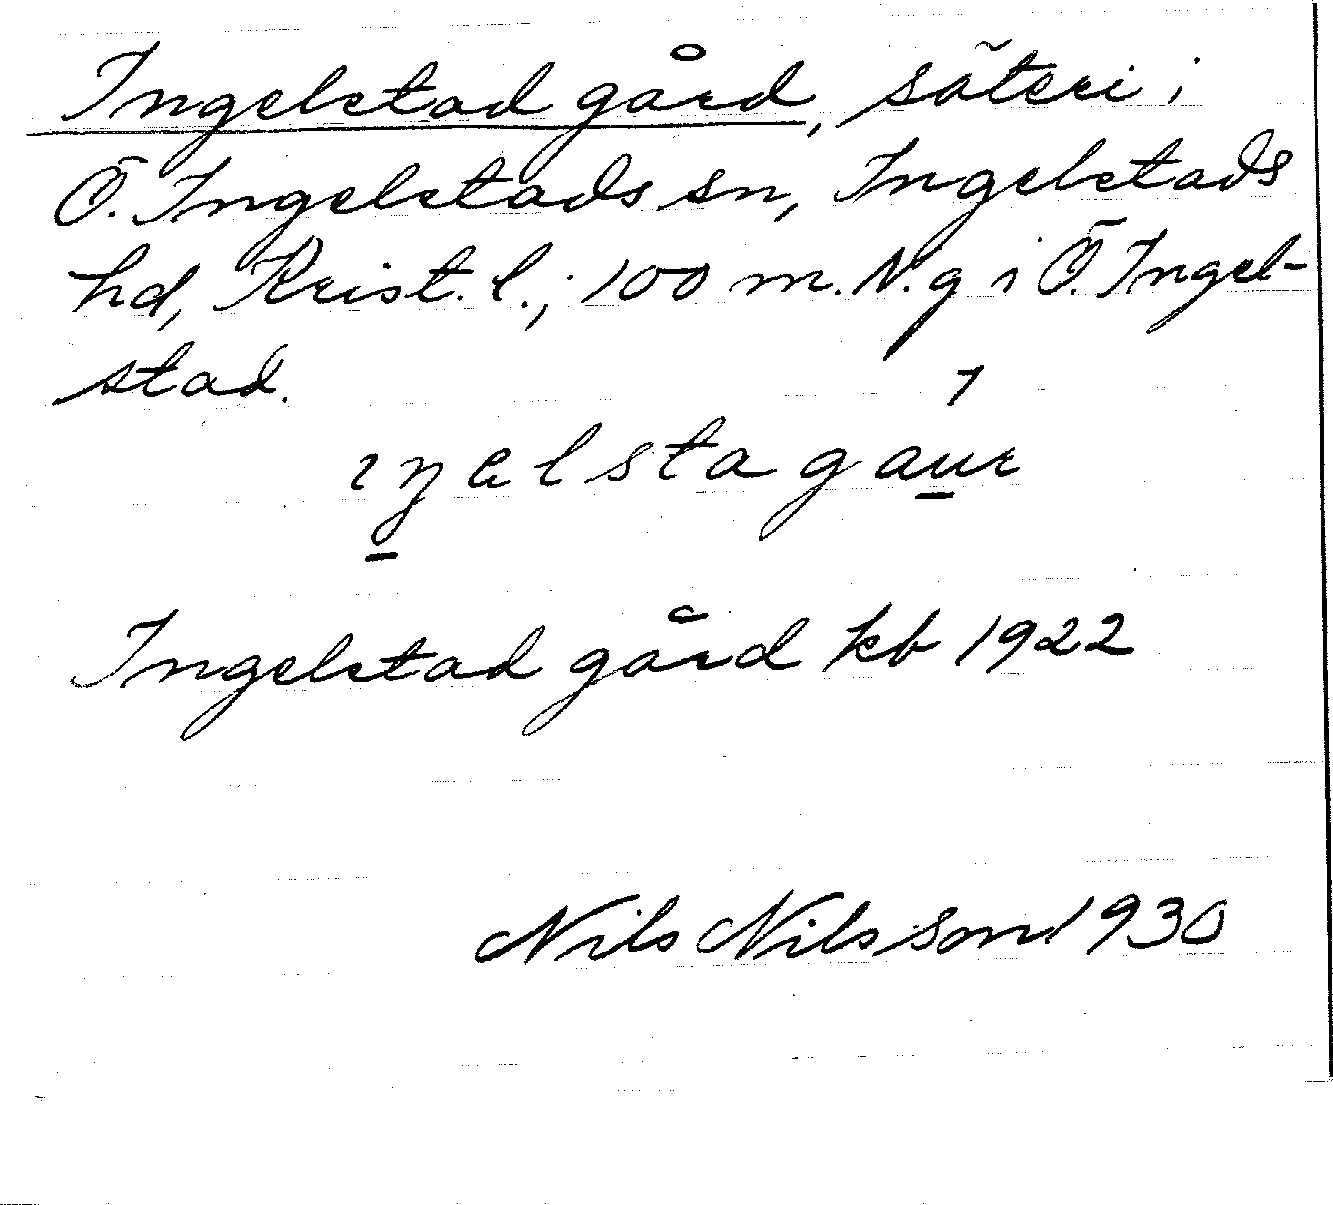 Ingelstad gård, säteri i
Ö. Ingelstads sn, Ingelstads
hd, Krist. l.; 100 m. N. g i Ö. Ingel-
stad.
ıŋəlstagaur
Ingelstad gård kb 1922
Nils Nilsson 1930